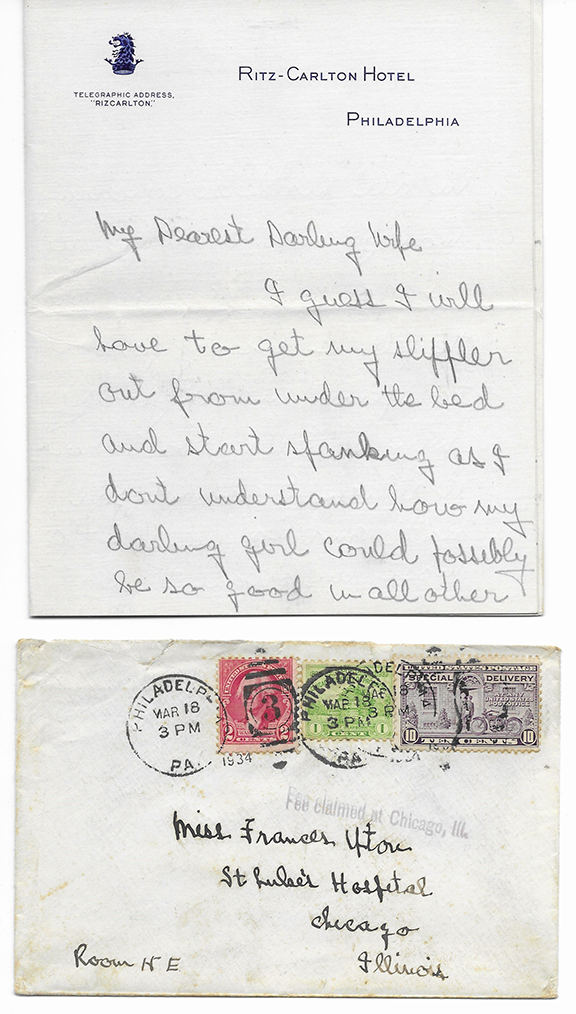 TELEGRAPHIC ADDRESS,
"RIZCARLTON."
RITZ-CARLTON HOTEL
PHILADELPHIA
My Dearest Darling Wife
I guess I will
have to get my sliffler
out from under the bed
and start spanking as I
dont understand how my
darling girl could possibly
be so good in all other
PHILADELPHIA
MAR 18
3 PM
1934
PA.
2 CENTS 2
3
PHILADELPHIA
MAR 18
3 PM
PA.
1934
1 CENT 1
UNITED STATES POSTAGE
SPECIAL DELIVERY
10 TEN CENTS 10
Fee claimed at Chicago, Ill.
Miss Frances Upton
St Luke's Hospital
Chicago
Illinois
Room N E